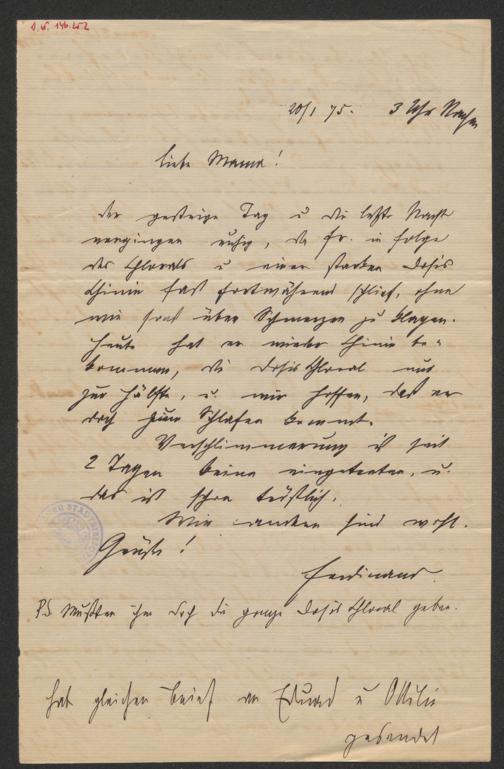 20/1 75. 3 Uhr Nachm
liebe Mama!
der gestrige Tag u die letzte Nacht
vergingen ruhig, da Fr. in Folge
des Chlorals u einer starken Dosis
Chinin fast fortwährend schlief, ohne
wie sonst über Schmerzen zu klagen.
Heute hat er wieder Chinin be-
kommen, die Dosis Chloral nur
zur Hälfte, u. wir hoffen, daß er
doch zum Schlafen kommt.
Verschlimmerung ist seit
2 Tagen keine eingetreten, u.
das ist schon tröstlich.
Wir andern sind wohl.
Grüße!
Ferdinand.
PS Mußten ihm doch die ganze Dosis Chloral geben.
hab gleichen Brief an Eduard u Ottilie
gesendet